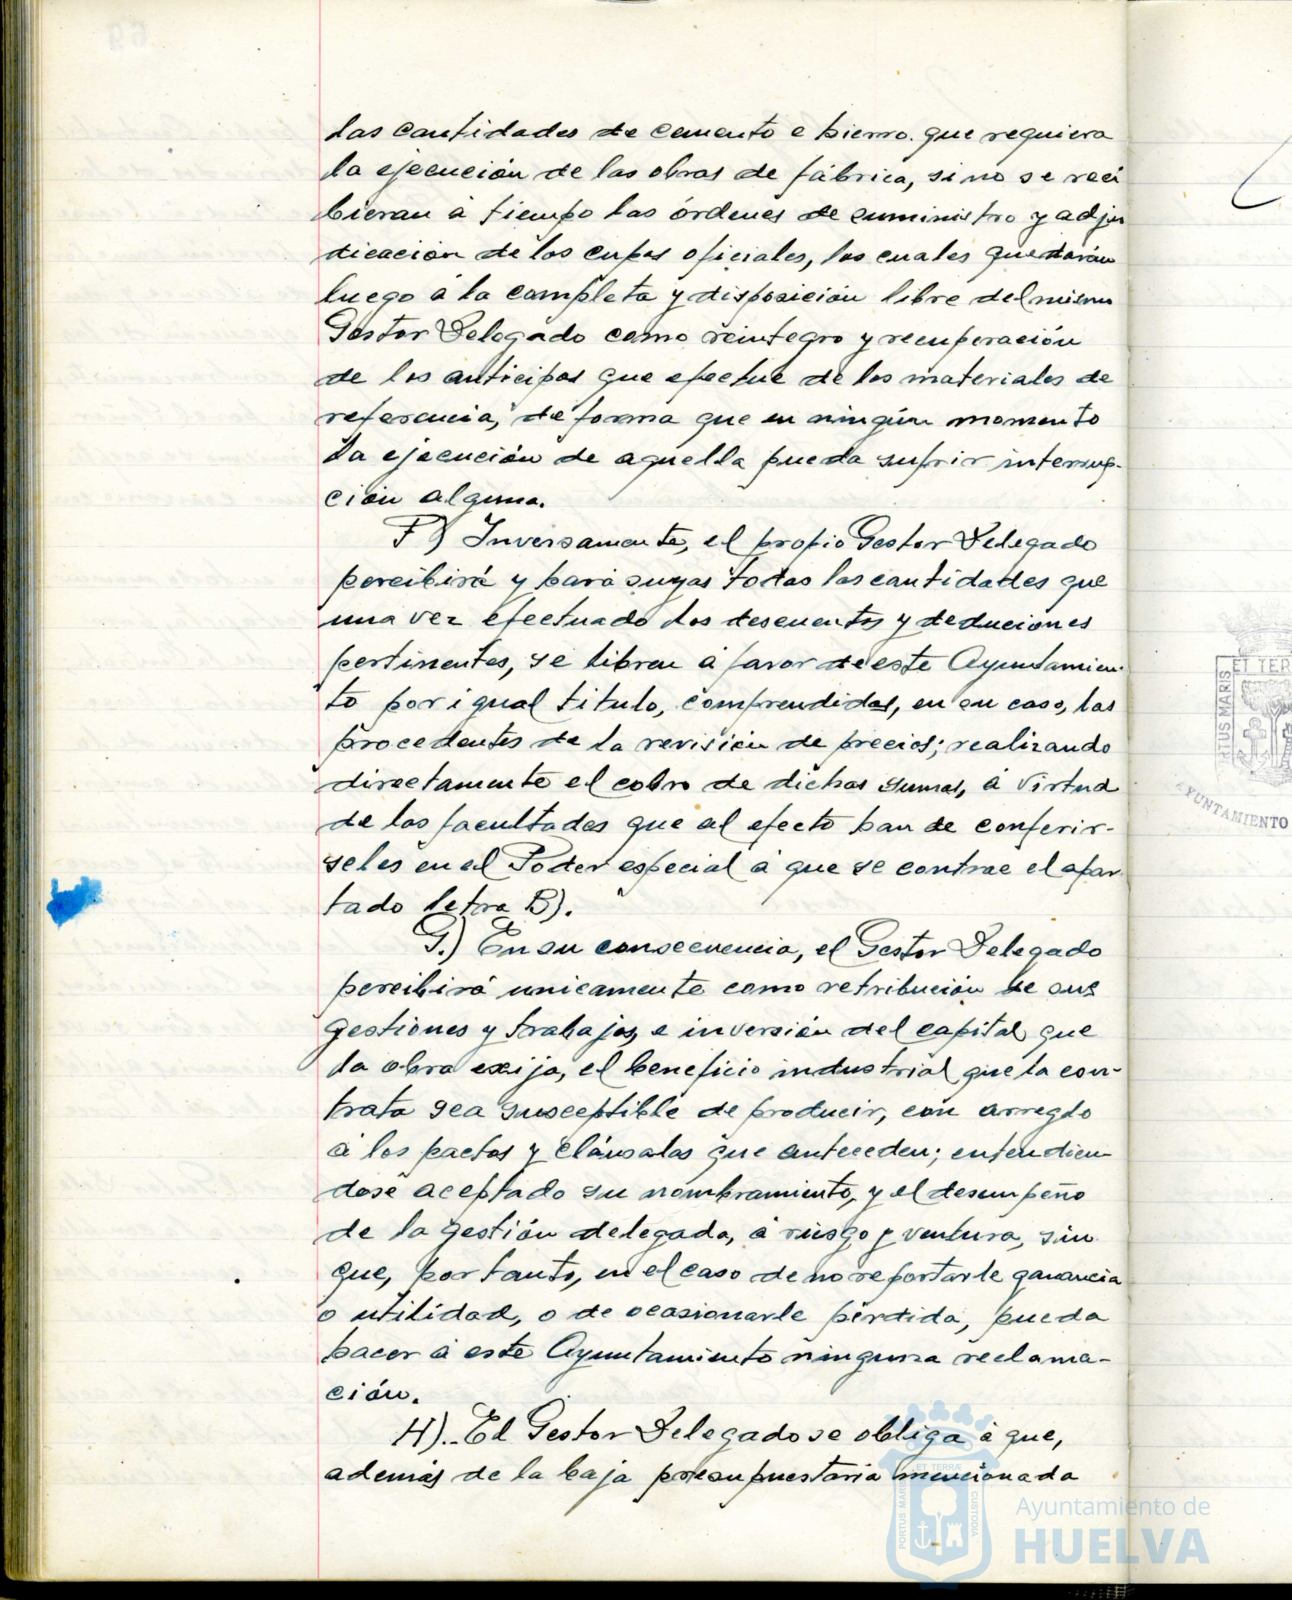 las cantidades de cemento e hierro que requiera
la ejecución de las obras de fábrica, si no se reci
bieran á tiempo las órdenes de suministro y adju
dicación de los cupos oficiales, los cuales quedarán
luego á la completa y disposición libre del mismo
Gestor Delegado como reintegro y recuperación
de los anticipos que efectue de los materiales de
referencia, de forma que en ningún momento
la ejecución de aquella pueda sufrir interrup-
ción alguna.
F) Inversamente, el propio Gestor Delegado
percibirá y hará suyas todas las cantidades que
una vez efectuado los descuentos y deduciones
pertinentes, se libren á favor de este Ayuntamien-
to por igual titulo, comprendidas, en su caso, las
procedentes de la revisión de precios; realizando
directamente el cobro de dichas sumas, á virtud
de las facultades que al efecto han de conferir-
seles en el Poder especial á que se contrae el apar
tado letra B).
G.) En su consecuencia, el Gestor Delegado
percibirá unicamente como retribución de sus
gestiones y trabajos, e inversión del capital que
la obra exija, el beneficio industrial que la con-
trata sea susceptible de producir, con arreglo
á los pactos y cláusulas que anteceden; entendien-
dose aceptado su nombramiento, y el desempeño
de la gestión delegada, á riesgo y ventura, sin
que, por tanto, en el caso de no reportarle ganancia
o utilidad, o de ocasionarle pérdida, pueda
hacer á este Ayuntamiento ninguna reclama-
ción.
H).- El Gestor Delegado se obliga á que,
además de la baja presupuestaria mencionada
ET TER
PORTUS MARIS
AYUNTAMIENTO
PORTUS MARIS
ET TERRÆ
CUSTODIA
Ayuntamiento de
HUELVA